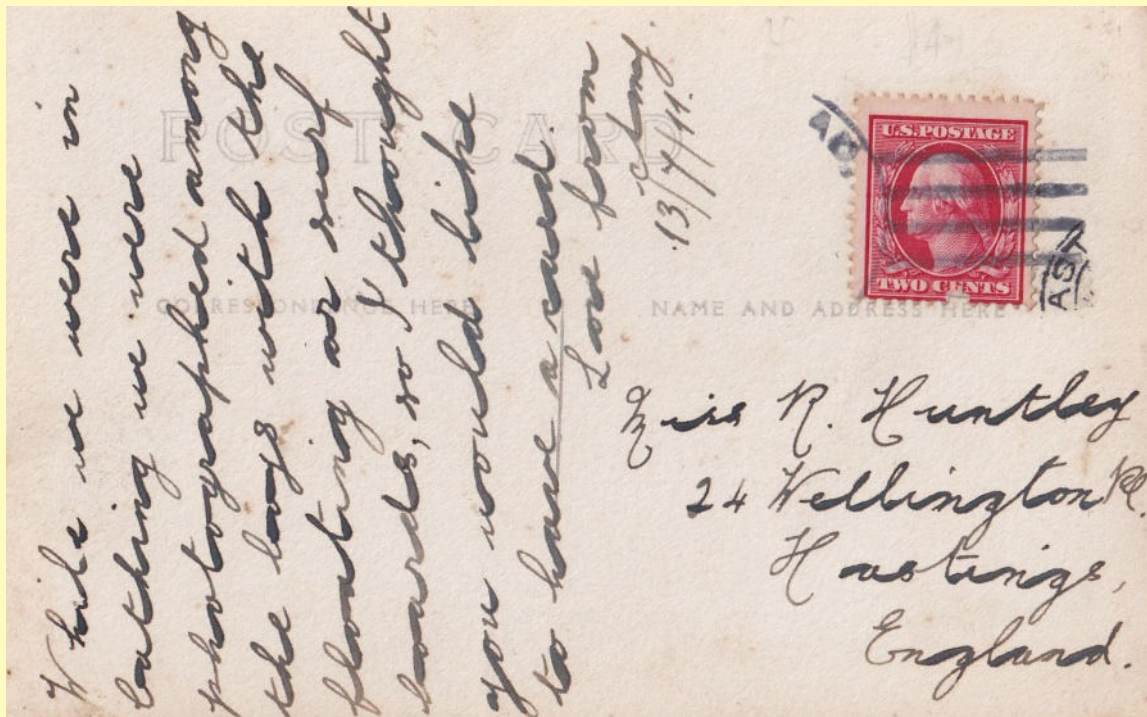 POST CARD
CORRESPONDENCE HERE
NAME AND ADDRESS HERE
U.S.POSTAGE
TWO CENTS
While we were in
bathing we were
photographed among
the boys with the
floating or surf
boards, so I thought
you would like
to have a card.
Love from
13/4/11.
Miss R. Huntley
24 Wellington Rd.
Hastings,
England.